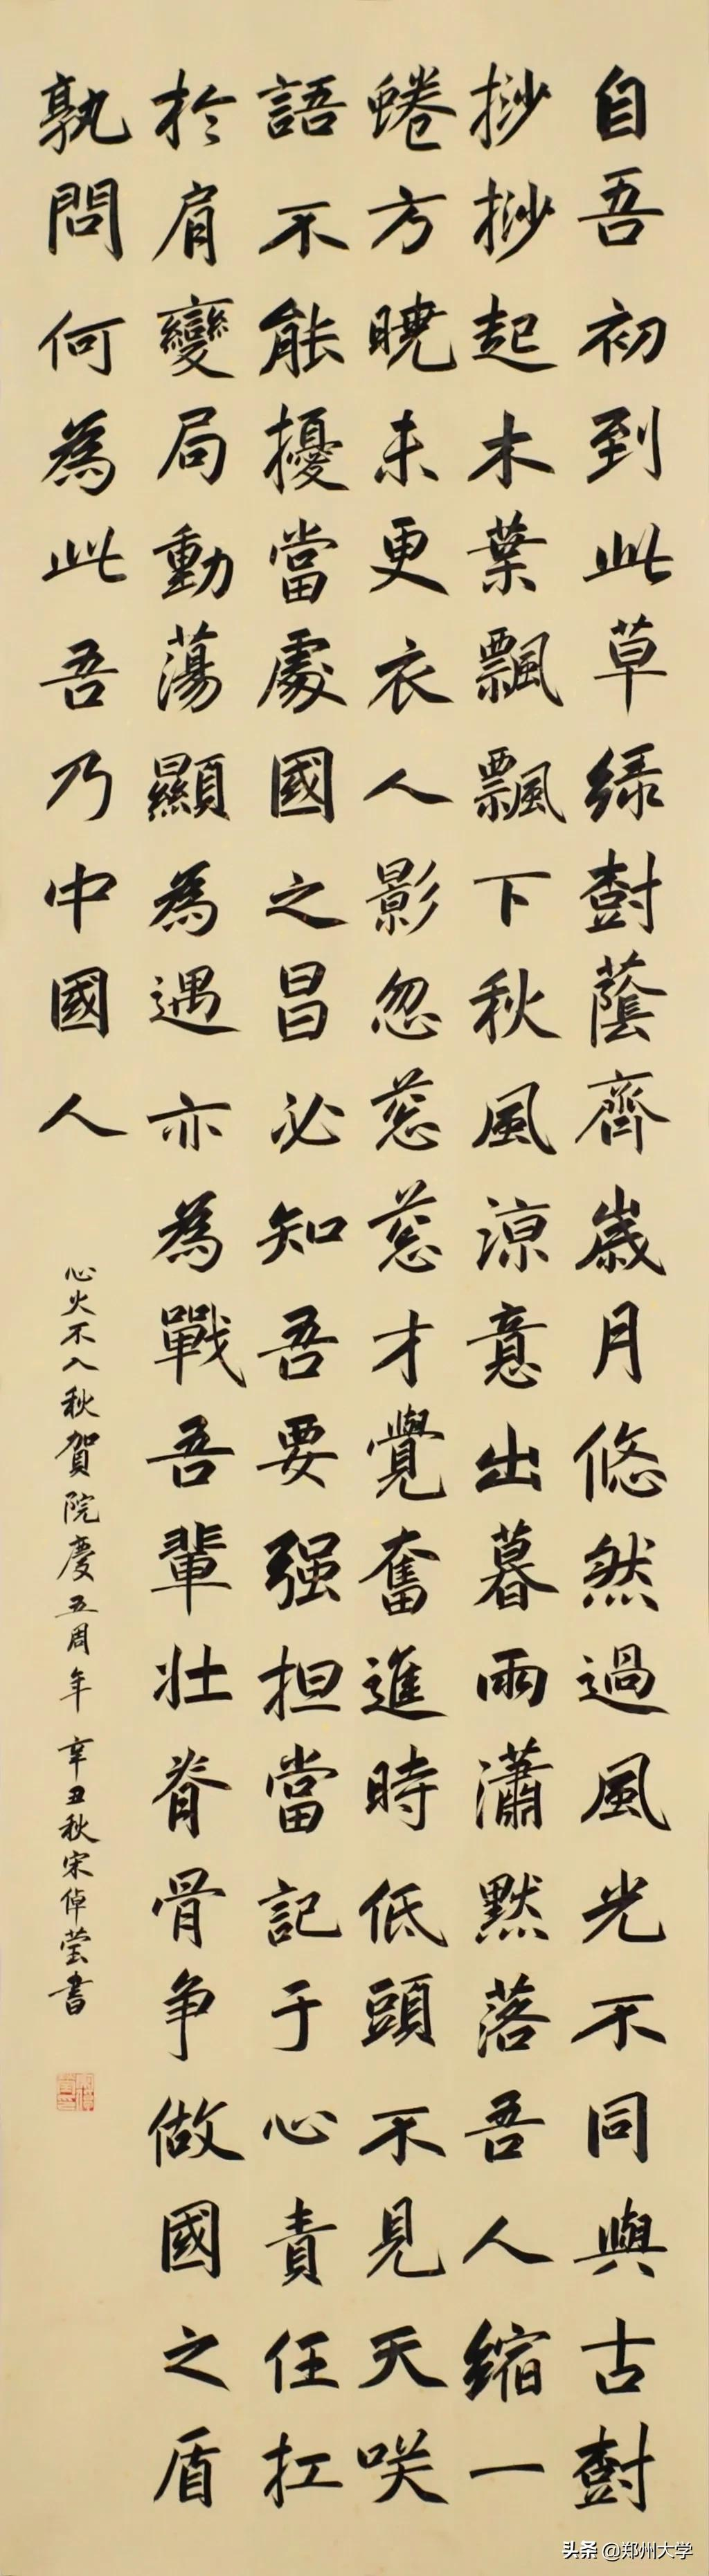 自吾初到此草绿樹蔭齊歲月悠然過風光不同與古樹
挱挱起木葉飄飄下秋風涼意出暮雨瀟黙落吾人縮一
蜷方曉未更衣人影忽蒽蒽才覺奮進時低頭不見天咲
語不能擾當處國之昌必知吾要强担當記于心責任扛
於肩變局動蕩顯為遇亦為戰吾輩壮脊骨争做國之盾
孰問何為此吾乃中國人
心火不入秋賀院慶五周年 辛丑秋宋倬莹書
头条 @郑州大学